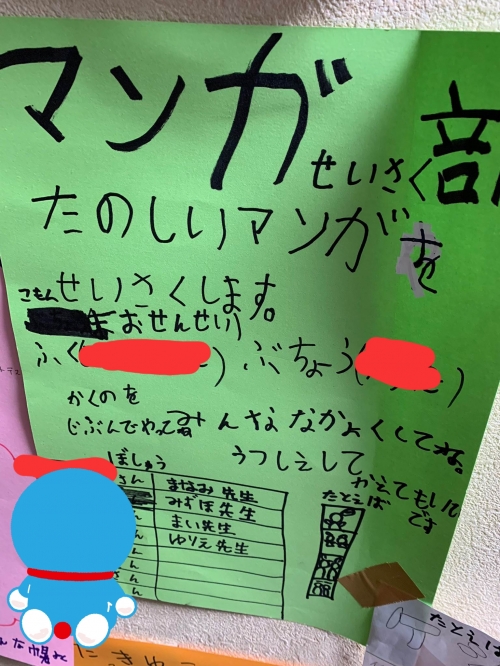 マンガせいさく部
たのしいマンガを
せいさくします。
こもん
まおせんせい)
ふく( ) ぶちょう( )
かくのを
じぶんでやってね みんな なかよくしてね。
うつしえして
かえてもいい
です
ぼしゅう
さん
まなみ先生
みずほ先生
まい先生
ゆりえ先生
ん
ん
さん
ん
たとえば
たとえば